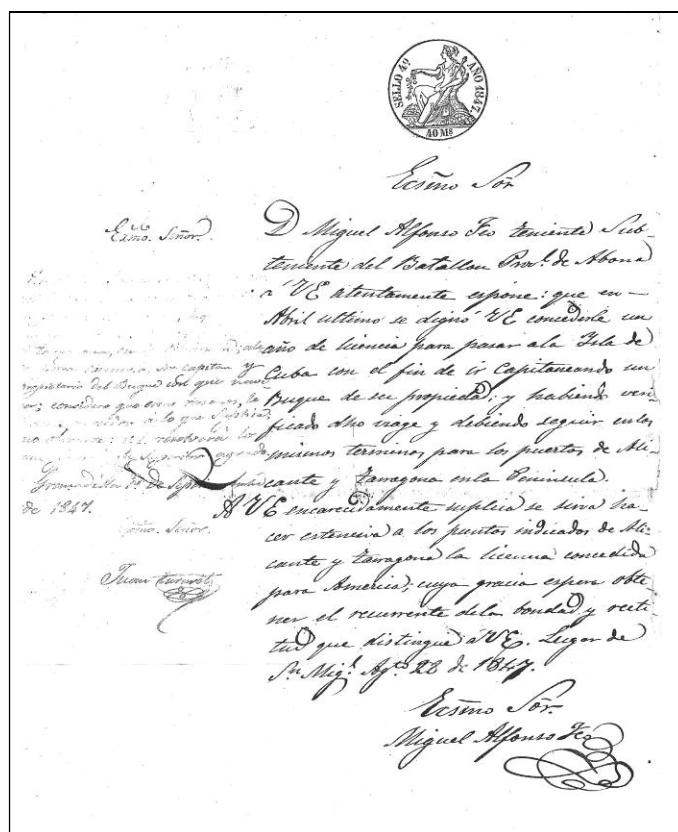 SELLO 4º AÑO 1847.
40 Ms
Ecsmo Sor
D Miguel Alfonso Feo teniente Sub-
teniente del Batallon Provl. de Abona
a VE atentamente espone: que en
Abril ultimo se dignó VE concederle un
año de licencia para pasar ala Isla de
Cuba con el fin de ir Capitaneando un
Buque de su propiedad; y habiendo veri-
ficado dho viage y debiendo seguir enlos
mismos terminos para los puertos de Ali-
cante y Tarragona enla Peninsula.
A VE encarecidamente suplica se sirva ha-
cer estensiva a los puntos indicados de Ali-
cante y Tarragona la licencia concedida
para America; cuya gracia espera obte-
ner el recurrente dela bondad y recti-
tud que distingue á VE. Lugar de
Sn. Migl. Agto. 28 de 1847.
Ecsmo Sor.
Miguel Alfonso Feo
Exmo. Señor.
capitan y
propietario del Buque con el que
considero que
á lo que Suplica;
resolverá lo
Granadilla 1º de
de 1847.
Exmo. Señor.
Juan